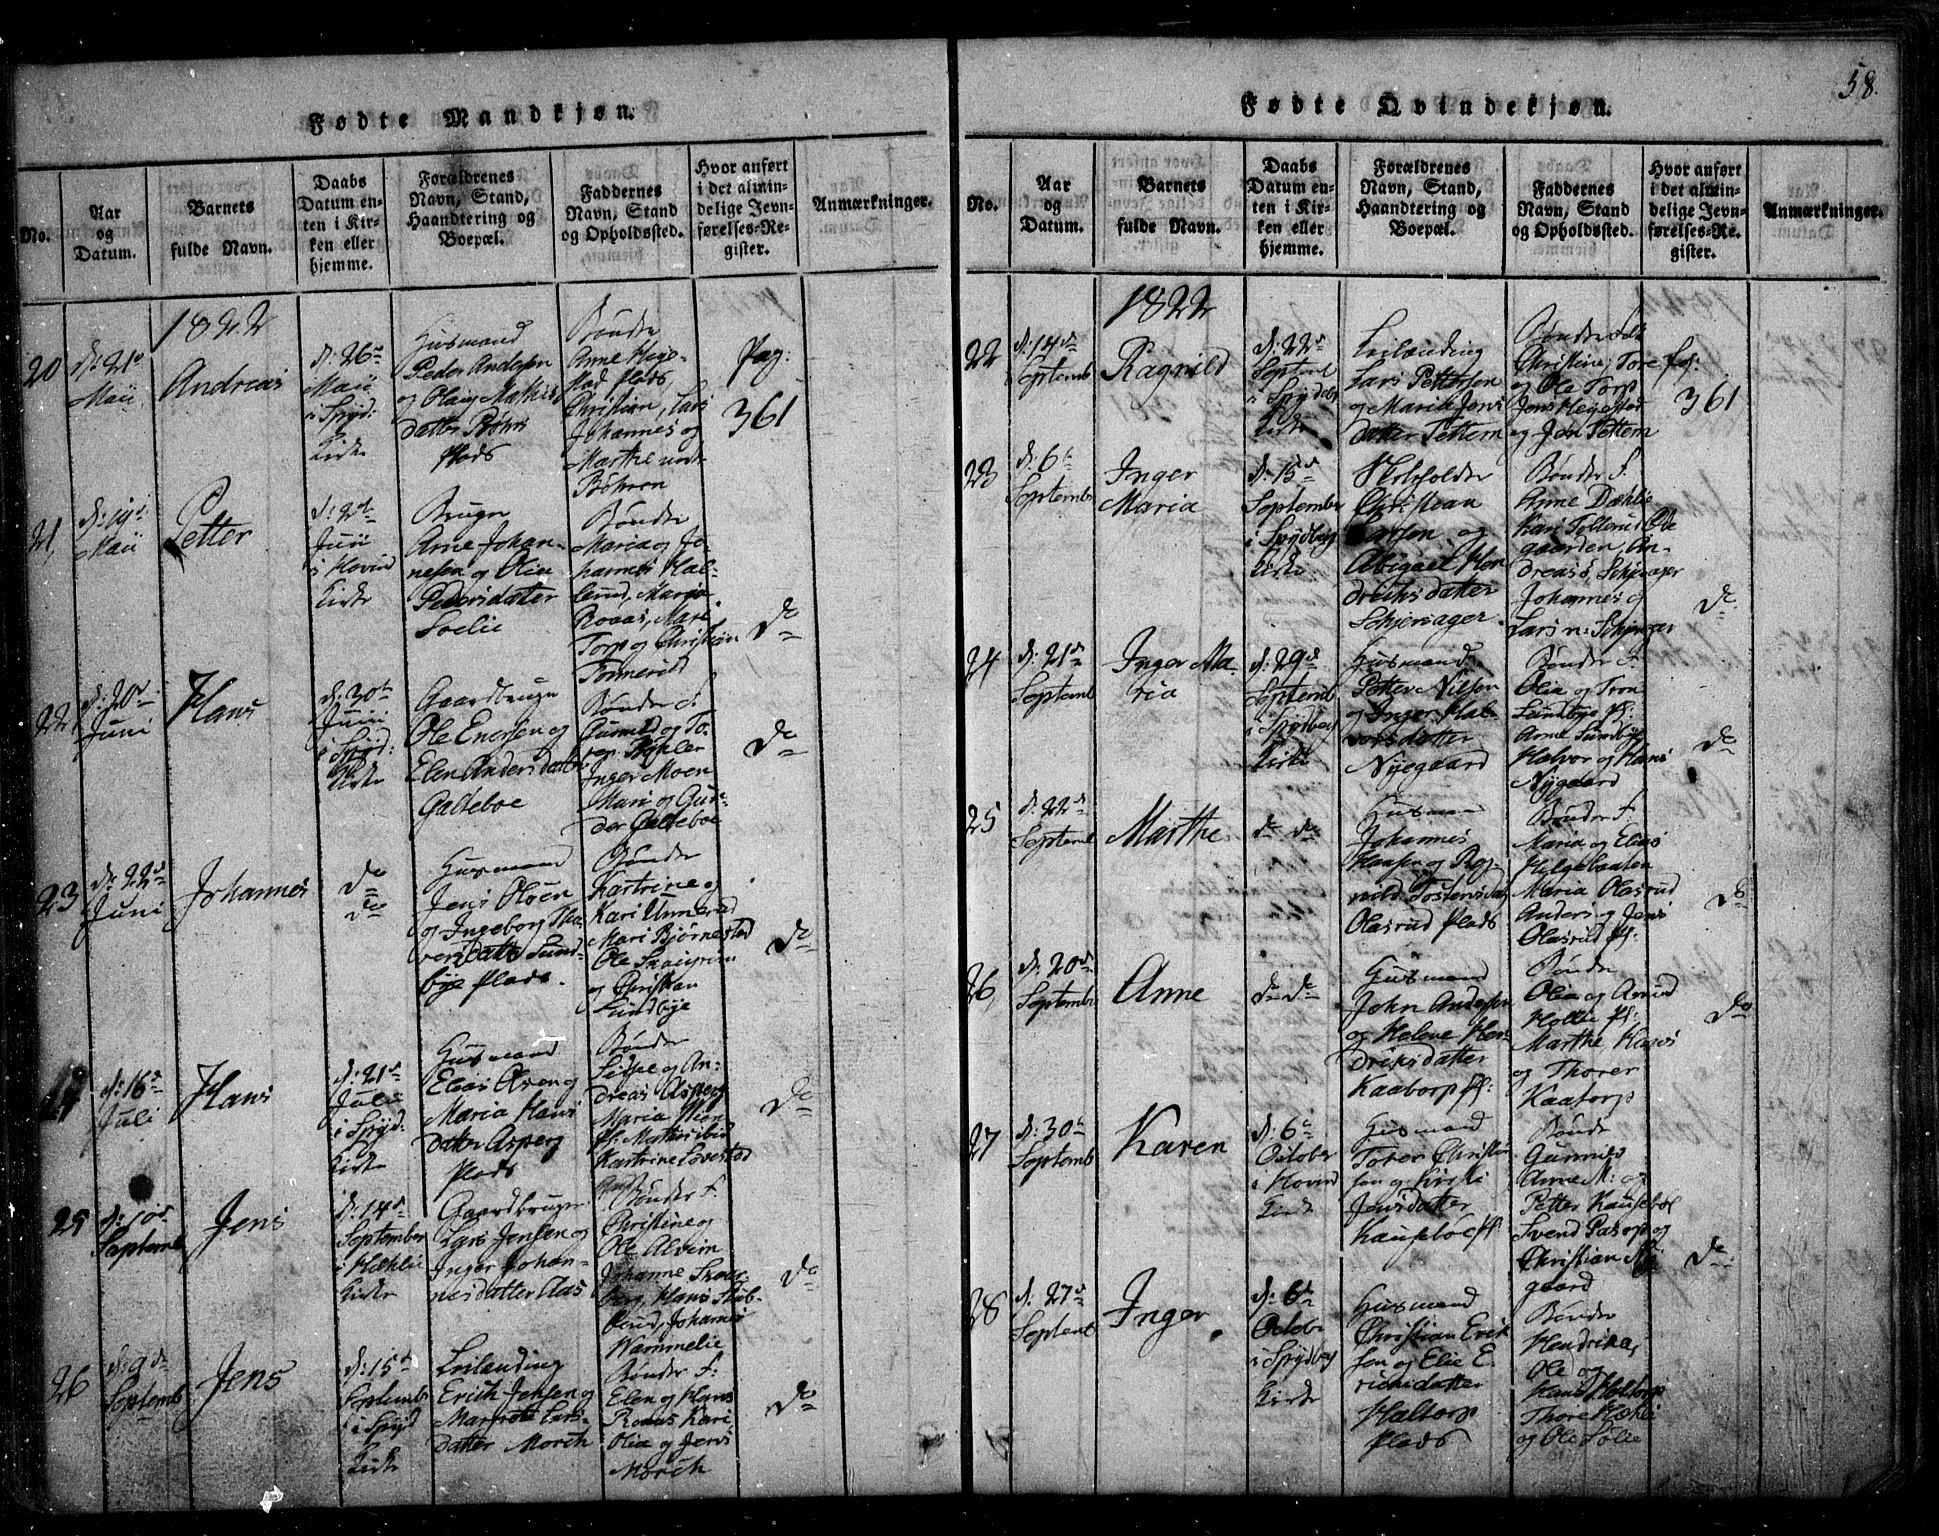 58.
Fødte Mandkjøn.
No.
Aar
og
Datum.
Barnets
fulde Navn.
Daabs
Datum en-
ten i Kir-
ken eller
hjemme.
Forældrenes
Navn, Stand,
Haandtering og
Boepæl.
Faddernes
Navn, Stand
og Opholdssted.
Hvor anført
i det almin-
delige Jevn-
førelses-Re-
gister.
Anmærkninger.
1822
20
d: 21d
Maii
Andreas
d: 26d
Maii
i Spyd:
Kirke
Husmand
Peder Andersen
og Olaug Mathis
datter Bøhns
Plads
Bønder
Anne Hege-
stad Plads
Christian, Lars
Johannes og
Marthe
Bøhren
Pag:
361
21
d: 19d
Maii
Petter
d: 2d
Juii
i Hovind
Kirke
Bruger
Arne Johan-
nesen og Olia
Pedersdatter
Soelie
Bønder
Maria og Jo-
hannes
Maria
Roaas, Mari
Torp og Christian
Tommerud
do
22
d: 20d
Juni
Hans
d: 30t
Junii
i Spyd:
Kirke
Gaardbruger
Ole Enersen og
Elen Andersdatter
Galteboe
Bønder f:
Gunild og To-
Inger Moen
Mari og Gud-
der Galteboe
do
23
d: 22d
Juni
Johannes
do
do
Husmand
Jens Olsen
og Ingeborg Tha-
versdatter Sund-
bye Plads.
Bønder
Kartrine og
Kari Unnerud
Mari Bjørnestad
Ole
og Christian
Sundbye
do
24
d: 16d
Juli
Hans
d: 21d
Juli
i Spyd:
Kirke
Husmand
Elias Asen og
Maria Hans
datter Asperg
Plads
Bønder
Sidse og An-
dreas Asperg
Maria
Pl: Mathis ibid
Kartrine Lovestad
do
25
d: 10d
Septemb
Jens
d: 14d
September
i Hæhlie
Kirke
Gaardbruger
Lars Jensen og
Inger Johan-
nesdatter Aas
Bønder f:
Christine og
Ole Alvim
Johanne Skou-
berg, Hans Stub-
berud, Johannes
Wammelie
do
26
d: 9d
Septemb
Jens
d: 15d
Septemb
i Spyd
Kirke
Leilænding
Erich Jensen og
Margrete Lars-
datter Morch
Bønder f:
Elen og Hans
Roaas Kari
Olia og Jens
Morch
do
Fødte Qvindekjøn.
No.
Aar
og
Datum.
Barnets
fulde Navn.
Daabs
Datum en-
ten i Kir-
ken eller
hjemme.
Forældrenes
Navn, Stand,
Haandtering og
Boepæl.
Faddernes
Navn, Stand
og Opholdssted.
Hvor anført
i det almin-
delige Jevn-
førelses-Re-
gister.
Anmærkninger.
1822
22
d: 14d
Septemb
Ragnild
d: 22d
Septemb
i Spydeb
Kirke
Leilænding
Lars Pettersen
og Maria Jens
datter Pettem
Bønder
Christine, Tore
og Ole Torp
Jens Hegestad
og Jon Pettem
361
23
d: 6t
Septemb
Inger
Maria
d: 15d
September
i Spydberg
Kirke
Skoleholder
Christian
Larsen og
Abigael Hen
drichsdatter
Schjersager.
Bønder f.
Anne Dæhlie
Kari Tollerud Øde
gaarden, An-
dreas, Schjersager
Johannes og
Lars n: Schjersager
do
24
d: 21d
Septemb
Inger Ma
ria
d: 29d
Septemb
i Spydberg
Kirke
Husmand
Petter Nilsen
og Inger Hal-
vorsdatter
Nyegaard
Bønder f.
Olia og Tron
Sundbye Pl:
Anne Sundbye
Halvor og Hans
Nygaard
do
25
d: 22d
Septemb
Marthe
do do
Husman
Johannes
Hansen og Rag-
nild Tostensdat
Olasrud Plads
Bønder f.
Maria og Elias
Helgelaaten
Maria Olasrud
Anders og Jens
Olasrud Pl:
do
26
d: 20d
Septemb
Anne
do do
Husmand
John Andersen
og Helene Hen-
drichsdatter
Kaatorp Pl:
Bønder
Olia og Amud
Hollie Pl:
Marthe Hans
og Thorer
Kaatorp
do
27
d: 30t
Septemb
Karen
d: 6t
October
i Hovind
Kirke
Husmand
Torer Christian
sen og Kirsti
Jensdatter
Kausebøe Pl:
Bønder
Gunnild
Anne M: og
Petter Kausebøe
Svend Pastorp og
Christian
gaard
do
28
d: 27d
Septemb
Inger
d: 6t
Octobr
i Spydberg
Kirke
Husmand
Christian Erik
sen og Elie E-
richsdatter
Haltorp
Plads
Bønder
Hendrikea,
Ole og
Hans Haltorp
Thore Hæhli
og Ole Solie